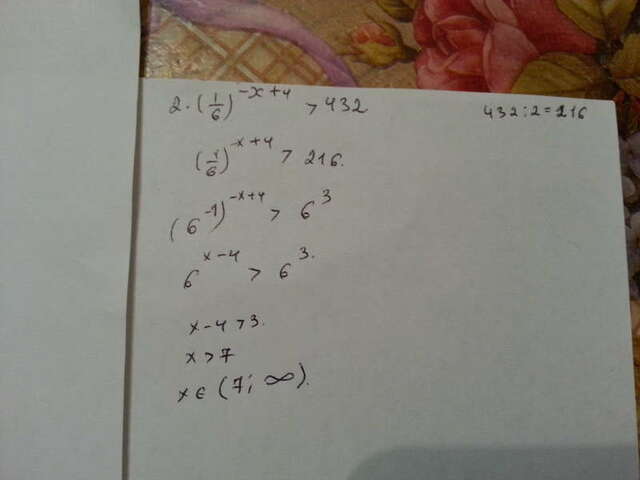 2·(1/6)^(-x+4) > 432
432:2=216
(1/6)^(-x+4) > 216.
(6^(-1))^(-x+4) > 6^3
6^(x-4) > 6^3.
x-4>3.
x>7
x∈(7; ∞).